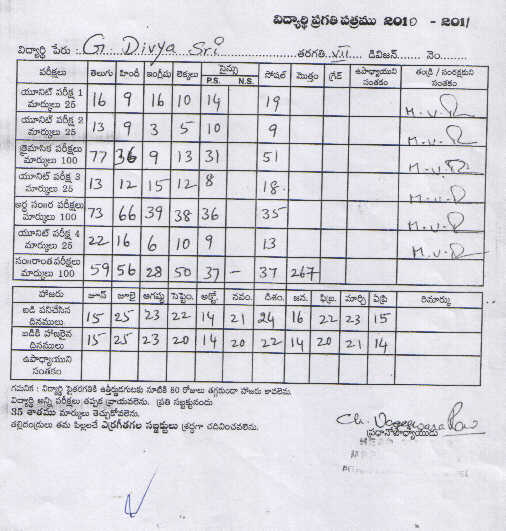 విద్యార్థి ప్రగతి పత్రము 2010 - 2011
విద్యార్థి పేరు : G. Divya Sri తరగతి VII డివిజన్ నెం.
పరీక్షలు తెలుగు హిందీ ఇంగ్లీషు లెక్కలు సైన్సు P.S. N.S. సోషల్ మొత్తం గ్రేడ్ ఉపాధ్యాయుని సంతకం తండ్రి / సంరక్షకుని సంతకం
యూనిట్ పరీక్ష 1 మార్కులు 25 16 9 16 10 14 19 M.V.R
యూనిట్ పరీక్ష 2 మార్కులు 25 13 9 3 5 10 9 M.V.R
త్రైమాసిక పరీక్షలు మార్కులు 100 77 36 9 13 31 51 M.V.R
యూనిట్ పరీక్ష 3 మార్కులు 25 13 12 15 12 8 18 M.V.R
అర్ధ సం॥ర పరీక్షలు మార్కులు 100 73 66 39 38 36 35 M.V.R
యూనిట్ పరీక్ష 4 మార్కులు 25 22 16 6 10 9 13 M.V.R
సం॥రాంత పరీక్షలు మార్కులు 100 59 56 28 50 37 - 37 267
హాజరు జూన్ జులై ఆగష్టు సెప్టెం. అక్టో. నవం. డిశం. జన. ఫిబ్ర. మార్చి ఏప్రి రిమార్కు
బడి పనిచేసిన దినములు 15 25 23 22 14 21 24 16 22 23 15
బడికి హాజరైన దినములు 15 25 23 20 14 20 22 14 20 21 14
ఉపాధ్యాయుని సంతకం
గమనిక : విద్యార్థి పైతరగతికి ఉత్తీర్ణుడగుటకు నూటికి 80 రోజులు తగ్గకుండా హాజరు కావలెను.
విద్యార్థి అన్ని పరీక్షలు తప్పక వ్రాయవలెను. ప్రతి సబ్జక్టునందు
35 శాతము మార్కులు తెచ్చుకోవలెను.
తల్లిదండ్రులు తమ పిల్లలచే ఎర్రగీతగల సబ్జక్టులు శ్రద్ధగా చదివించవలెను.
ప్రధానోపాధ్యాయుడు